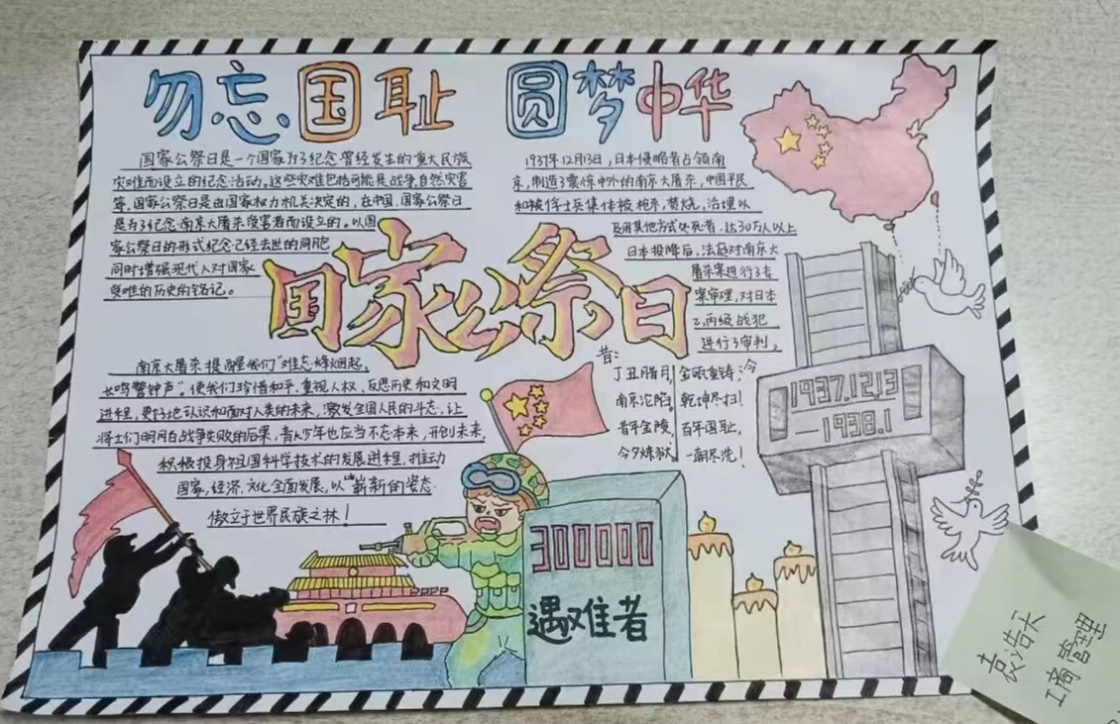 勿忘国耻 圆梦中华
国家公祭日是一个国家为了纪念曾经发生的重大民族
灾难而设立的纪念活动。这些灾难包括可能是战争、自然灾害
等,国家公祭日是由国家权力机关决定的,在中国,国家公祭日
是为了纪念南京大屠杀受害者而设立的。以国
家公祭日的形式纪念已经去世的同胞
同时增强现代人对国家
受难的历史的铭记。
1937年12月13日,日本侵略者占领南
京,制造了震惊中外的南京大屠杀,中国平民
和被俘士兵集体被枪杀,焚烧,活埋以
及用其他方式处死者,达30万人以上
日本投降后,法庭对南京大
屠杀案进行了专
案审理,对日本
乙丙级战犯
进行了审判。
国家公祭日
南京大屠杀提醒我们"难忘烽烟起,
长鸣警钟声"。使我们珍惜和平,重视人权,反思历史和文明
进程,更好地认识和面对人类的未来,激发全国人民的斗志,让
将士们明白战争失败的后果,青少年也应当不忘本来,开创未来,
积极投身祖国科学技术的发展进程,推动
国家,经济,文化全面发展,以"崭新的姿态
傲立于世界民族之林!
昔:
丁丑腊月,
南京沦陷。
昔年金陵,
今夕炼狱。
今
金瓯重铸,
乾坤尽扫!
百年国耻,
一朝尽洗!
1937.12.13
1938.1
300000
遇难者
工商管理